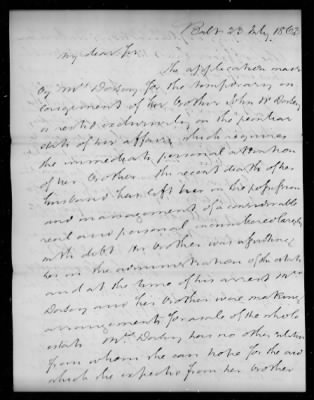 Balt 23 July 1862
My dear Sir
The application made
by Mrs Dorsey for the temporary en
largement of her brother John W Dorsey
is rested exclusively on the peculiar
state of her affairs, which requires
the immediate personal attention
of her brother. The recent death of her
husband has left her in the possession
and management of a considerable
real and personal incumbered largely
with debt. Her brother was
her in the administration of the estate
and at the time of his arrest Mrs
Dorsey and her brother were making
arrangements for a sale of the whole
estate. Mrs Dorsey has no other relation
from whom she can hope for the aid
which she expects from her brother